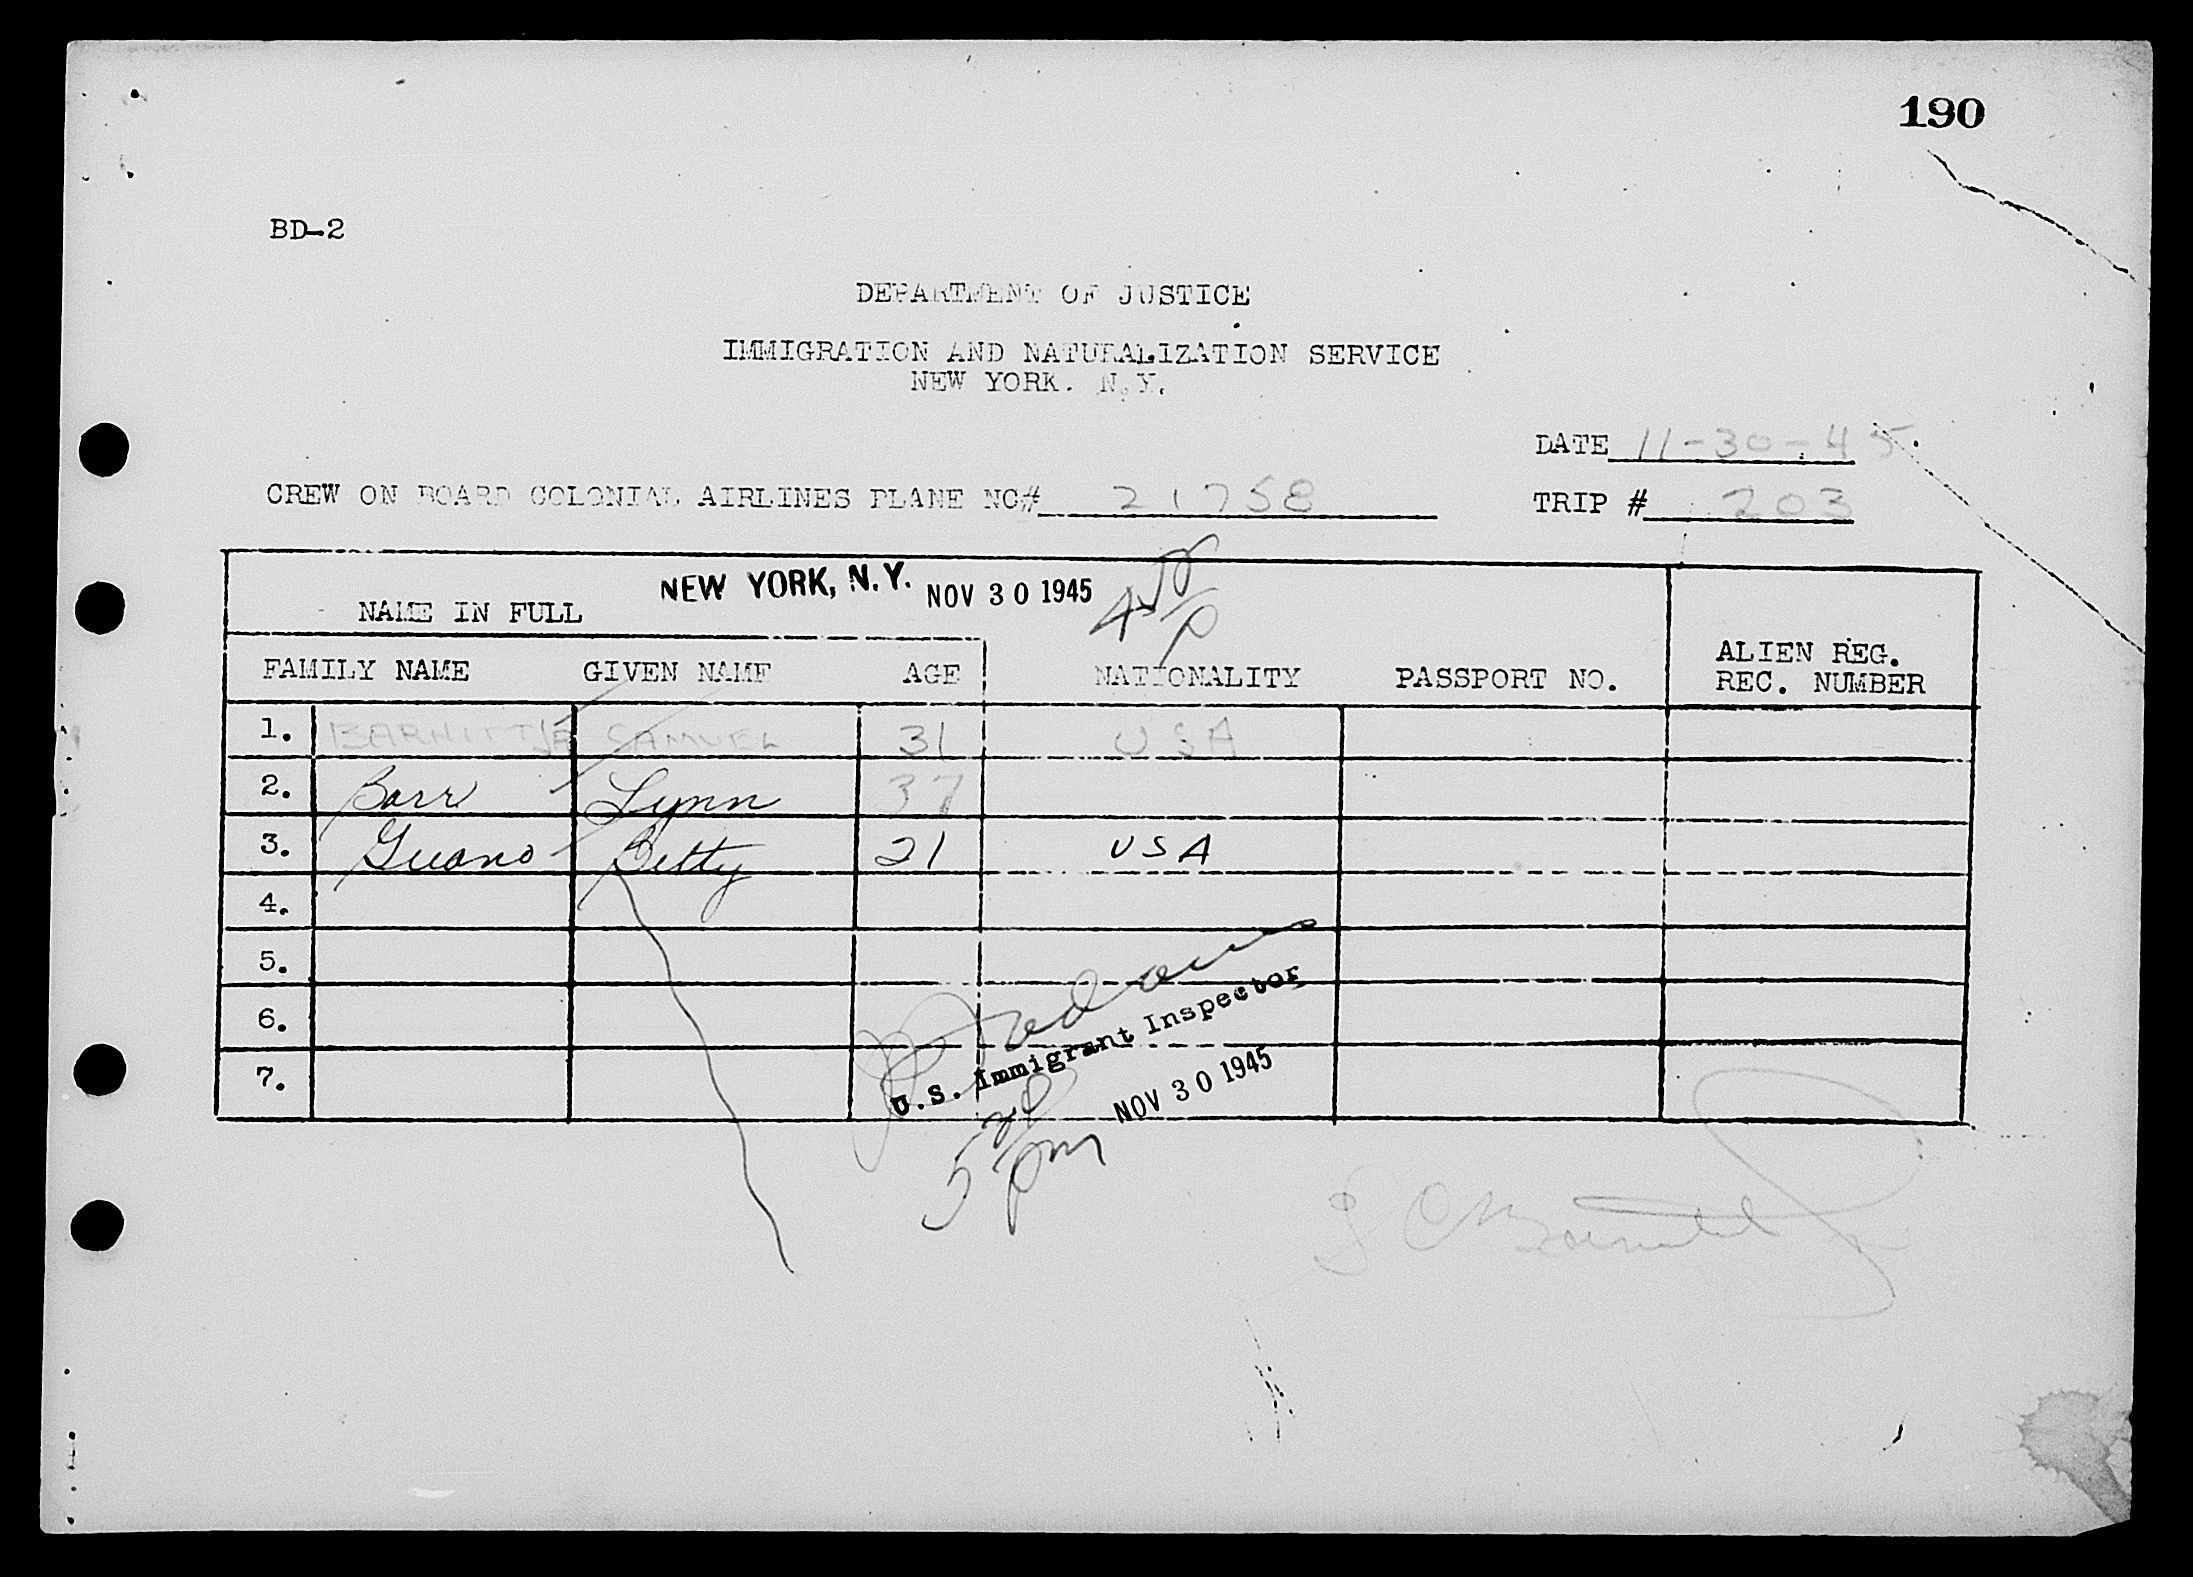 190
BD-2
DEPARTMENT OF JUSTICE
IMMIGRATION AND NATURALIZATION SERVICE
NEW YORK. N.Y.
DATE 11-30-45
CREW ON BOARD COLONIAL AIRLINES PLANE NO# 21758
TRIP # 203
NEW YORK, N.Y. NOV 30 1945
NAME IN FULL
FAMILY NAME GIVEN NAME AGE NATIONALITY PASSPORT NO. ALIEN REG. REC. NUMBER
1. SAMUEL 31 USA
2. Barr Lynn 37
3. Betty 21 USA
4.
5.
6.
7.
U.S. Immigrant Inspector
NOV 30 1945
5 20 pm